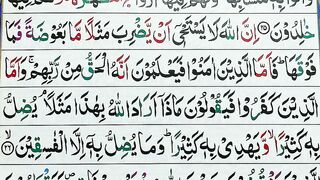 خٰلِدُوۡنَ ﴿۲۵﴾ اِنَّ اللّٰهَ لَا يَسۡتَحۡىٖۤ اَنۡ يَّضۡرِبَ مَثَلًا مَّا بَعُوۡضَةً فَمَا
فَوۡقَهَا ؕ فَاَمَّا الَّذِيۡنَ اٰمَنُوۡا فَيَعۡلَمُوۡنَ اَنَّهُ الۡحَـقُّ مِنۡ رَّبِّهِمۡ ۚ وَاَمَّا
الَّذِيۡنَ كَفَرُوۡا فَيَقُوۡلُوۡنَ مَاذَآ اَرَادَ اللّٰهُ بِهٰذَا مَثَلًا ۘ يُضِلُّ
بِهٖ كَثِيۡرًا ۙ وَّيَهۡدِىۡ بِهٖ كَثِيۡرًا ؕ وَمَا يُضِلُّ بِهٖۤ اِلَّا الۡفٰسِقِيۡنَ ﴿۲۶﴾